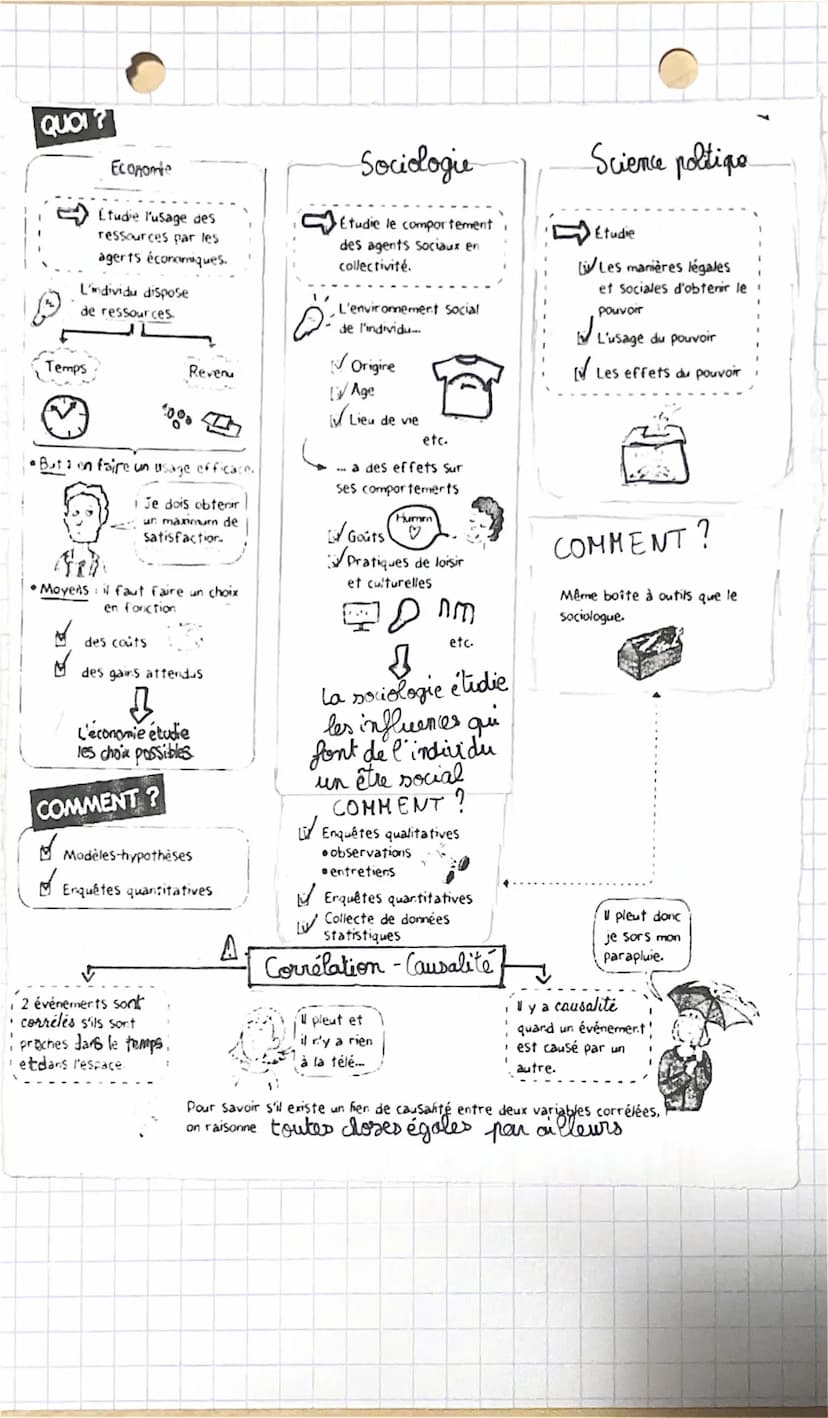 QUOI ?
Economie
Étudie l'usage des
ressources par les
agents économiques.
L'individu dispose
de ressources.
Temps
Revenu
• But : en faire un usage efficace.
Je dois obtenir
un maximum de
satisfaction.
• Moyens : il faut faire un choix
en fonction
des coûts
des gains attendus
L'économie étudie
les choix possibles
COMMENT ?
Modèles-hypothèses
Enquêtes quantitatives
Sociologie
Étudie le comportement
des agents sociaux en
collectivité.
L'environnement social
de l'individu...
Origine
Age
Lieu de vie
etc.
... a des effets sur
ses comportements
Humm
Goûts
Pratiques de loisir
et culturelles
etc.
La sociologie étudie
les influences qui
font de l'individu
un être social
COMMENT ?
Enquêtes qualitatives
• observations
• entretiens
Enquêtes quantitatives
Collecte de données
statistiques
Science politique
Étudie
Les manières légales
et sociales d'obtenir le
pouvoir
L'usage du pouvoir
Les effets du pouvoir
COMMENT ?
Même boîte à outils que le
sociologue.
Corrélation - Causalité
2 événements sont
corrélés s'ils sont
proches dans le temps
et dans l'espace
Il pleut et
il n'y a rien
à la télé...
Il y a causalité
quand un événement
est causé par un
autre.
Il pleut donc
je sors mon
parapluie.
Pour savoir s'il existe un lien de causalité entre deux variables corrélées,
on raisonne toutes choses égales par ailleurs